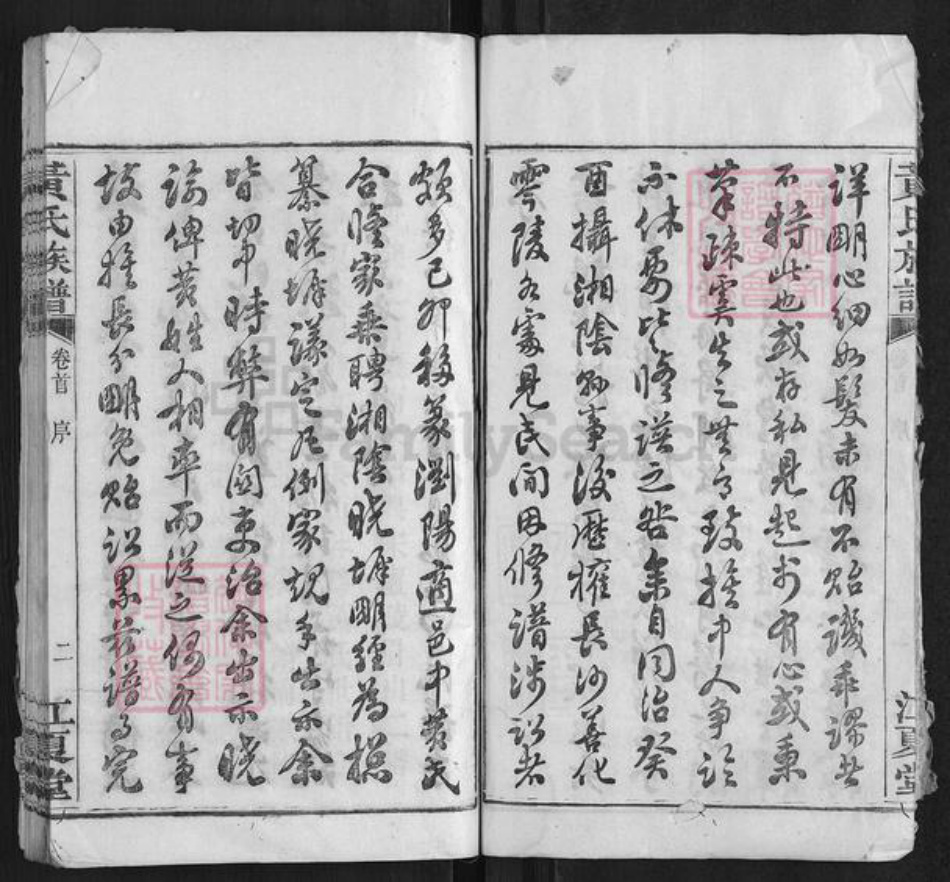 詳明心細如髮未有不貽譏乖謬者
不特此也或存私見起少有心或秉
筆疎虞失之無知致族中人爭論
不休要皆修譜之咎余自同治癸
酉攝湘陰縣事後歷權長沙善化
零陵各處見民間因修譜涉訟者
頗多己卯移篆瀏陽適邑中黃氏
合修家乘聘湘陰曉塘明經為總
纂曉塘議定凡例家規手出示余
皆切中時弊有關吏治余出示曉
諭俾黃姓人相率而從之倘有事
故由族長分明免貽訟累茲譜乃完
黃氏族譜
卷首 序
二
江夏堂
黃氏族譜
卷首 序
江夏堂
FamilySearch